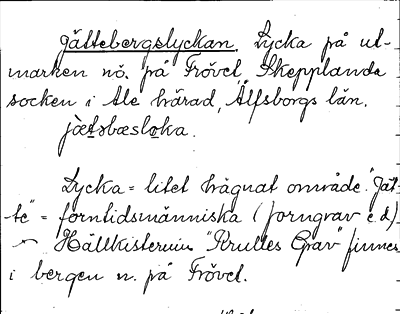 Jättebergslyckan. Lycka på ut-
marken nö. på Frövel, Skepplanda
socken i Ale härad, Älfsborgs län.
jætsbæsloka.
Lycka = litet hägnat område. "Jät-
te" = forntidsmänniska (forngrav e.d.)
Hällkisteruin "Krulles Grav" finnes
i bergen n. på Frövel.